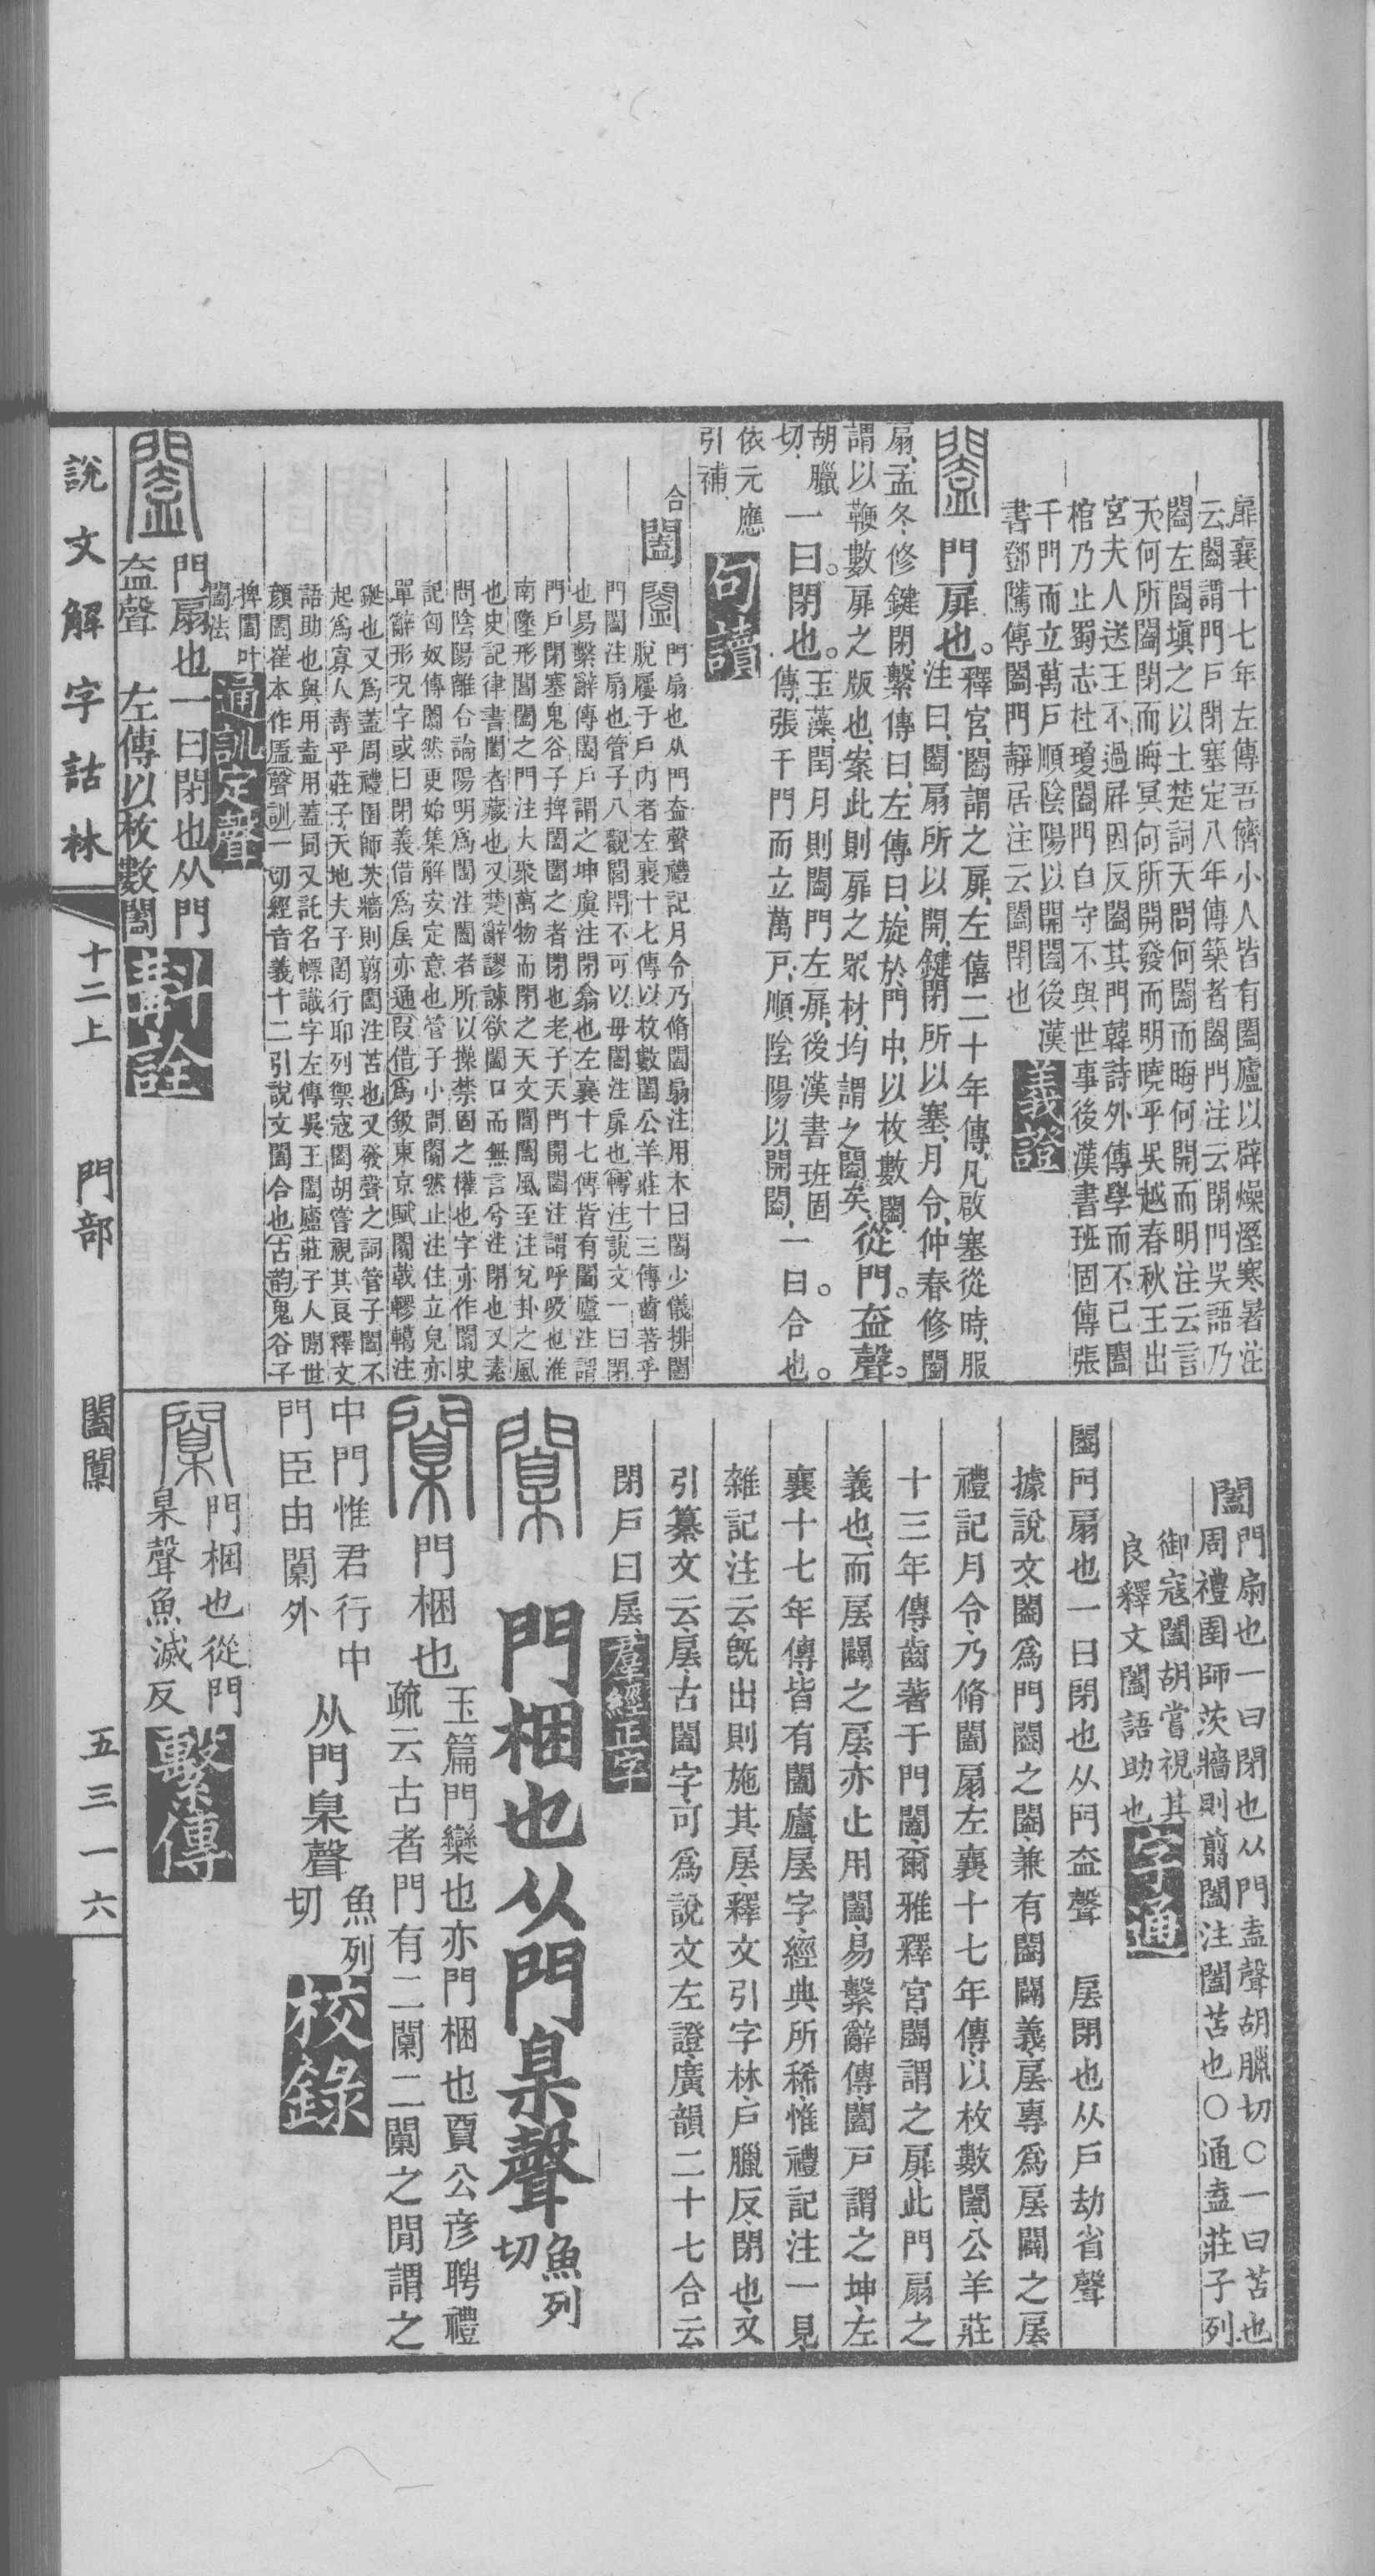 扉襄十七年左傳吾儕小人皆有闔廬以辟燥溼寒暑注
云闔謂門戶閉塞定八年傳築者闔門注云閉門吳語乃
闔左闔塡之以土楚詞天問何闔而晦何開而明注云言
天何所闔閉而晦冥何所開發而明曉乎吳越春秋王出
宮夫人送王不過屏因反闔其門韓詩外傳學而不已闔
棺乃止蜀志杜瓊闔門自守不與世事後漢書班固傳張
千門而立萬戶順陰陽以開闔後漢
書鄧騭傳闔門靜居注云闔閉也 義證
門扉也。釋宮、闔謂之扉、左僖二十年傳、凡啟塞從時、服
注曰、闔扇所以開、鍵閉所以塞、月令、仲春修闔
扇、孟冬修鍵閉、繫傳曰、左傳曰、旋於門中、以枚數闔、
謂以鞭數扉之版也、案此則扉之眾材、均謂之闔矣、從門。盍聲。
胡臘
切、一曰。閉也。玉藻、閏月則闔門左扉、後漢書班固
傳、張千門而立萬戶、順陰陽以開闔、一曰合也。
依元應
引補、 句讀
合
闔
門扇也从門盍聲禮記月令乃脩闔扇注用木曰闔少儀排闔
脫屨于戶內者左襄十七傳以枚數闔公羊莊十三傳齒著乎
門闔注扇也管子八觀閭閈不可以毋闔注扉也轉注說文一曰閉
也易繫辭傳闔戶謂之坤虞注閉翕也左襄十七傳皆有闔廬注謂
門戶閉塞鬼谷子捭闔闔之者閉也老子天門開闔注謂呼吸也淮
南墜形閶闔之門注大聚萬物而閉之天文閶闔風至注兌卦之風
也史記律書闔者藏也又楚辭謬諫欲闔口而無言兮注閉也又素
問陰陽離合論陽明爲闔注闔者所以操禁固之權也字亦作闟史
記匈奴傳闟然更始集解安定意也管子小問闟然止注住立皃亦
單辭形況字或曰閉義借爲㞐亦通叚借爲鈒東京賦闟戟轇輵注
鋋也又爲蓋周禮圉師茨牆則翦闔注苫也又發聲之詞管子闔不
起爲寡人壽乎莊子天地夫子闔行耶列禦寇闔胡嘗視其良釋文
語助也與用盍用蓋同又託名幖識字左傳吳王闔廬莊子人閒世
顏闔崔本作廅聲訓一切經音義十二引說文闔合也古韵鬼谷子
捭闔叶
闔法 通訓定聲
門扇也一曰閉也从門
盍聲 左傳以枚數闔 斠詮
闔
門扇也一曰閉也从門盍聲胡臘切〇一曰苫也
周禮圉師茨牆則翦闔注闔苫也〇通盍莊子列
御寇闔胡嘗視其
良釋文闔語助也 字通
闔門扇也一曰閉也从門盍聲 㞐閉也从戶劫省聲
據說文、闔爲門闔之闔、兼有闔闢義、㞐專爲㞐闢之㞐、
禮記月令、乃脩闔扇、左襄十七年傳、以枚數闔、公羊莊
十三年傳、齒著于門闔、爾雅釋宮、闔謂之扉、此門扇之
義也、而㞐闢之㞐、亦止用闔、易繫辭傳、闔戶謂之坤、左
襄十七年傳、皆有闔廬、㞐字經典所稀、惟禮記注一見、
雜記注云、旣出則施其㞐、釋文引字林、戶臘反、閉也、又
引纂文云、㞐、古闔字、可爲說文左證、廣韻二十七合云、
閉戶曰㞐、 羣經正字
門梱也从門臬聲 魚列
切
門梱也 玉篇門欒也亦門梱也賈公彥聘禮
疏云古者門有二闑二闑之閒謂之
中門惟君行中
門臣由闑外 从門臬聲 魚列
切 校錄
門梱也從門
臬聲魚滅反 繫傳
說文解字詁林 十二上 門部 闔闑 五三一六